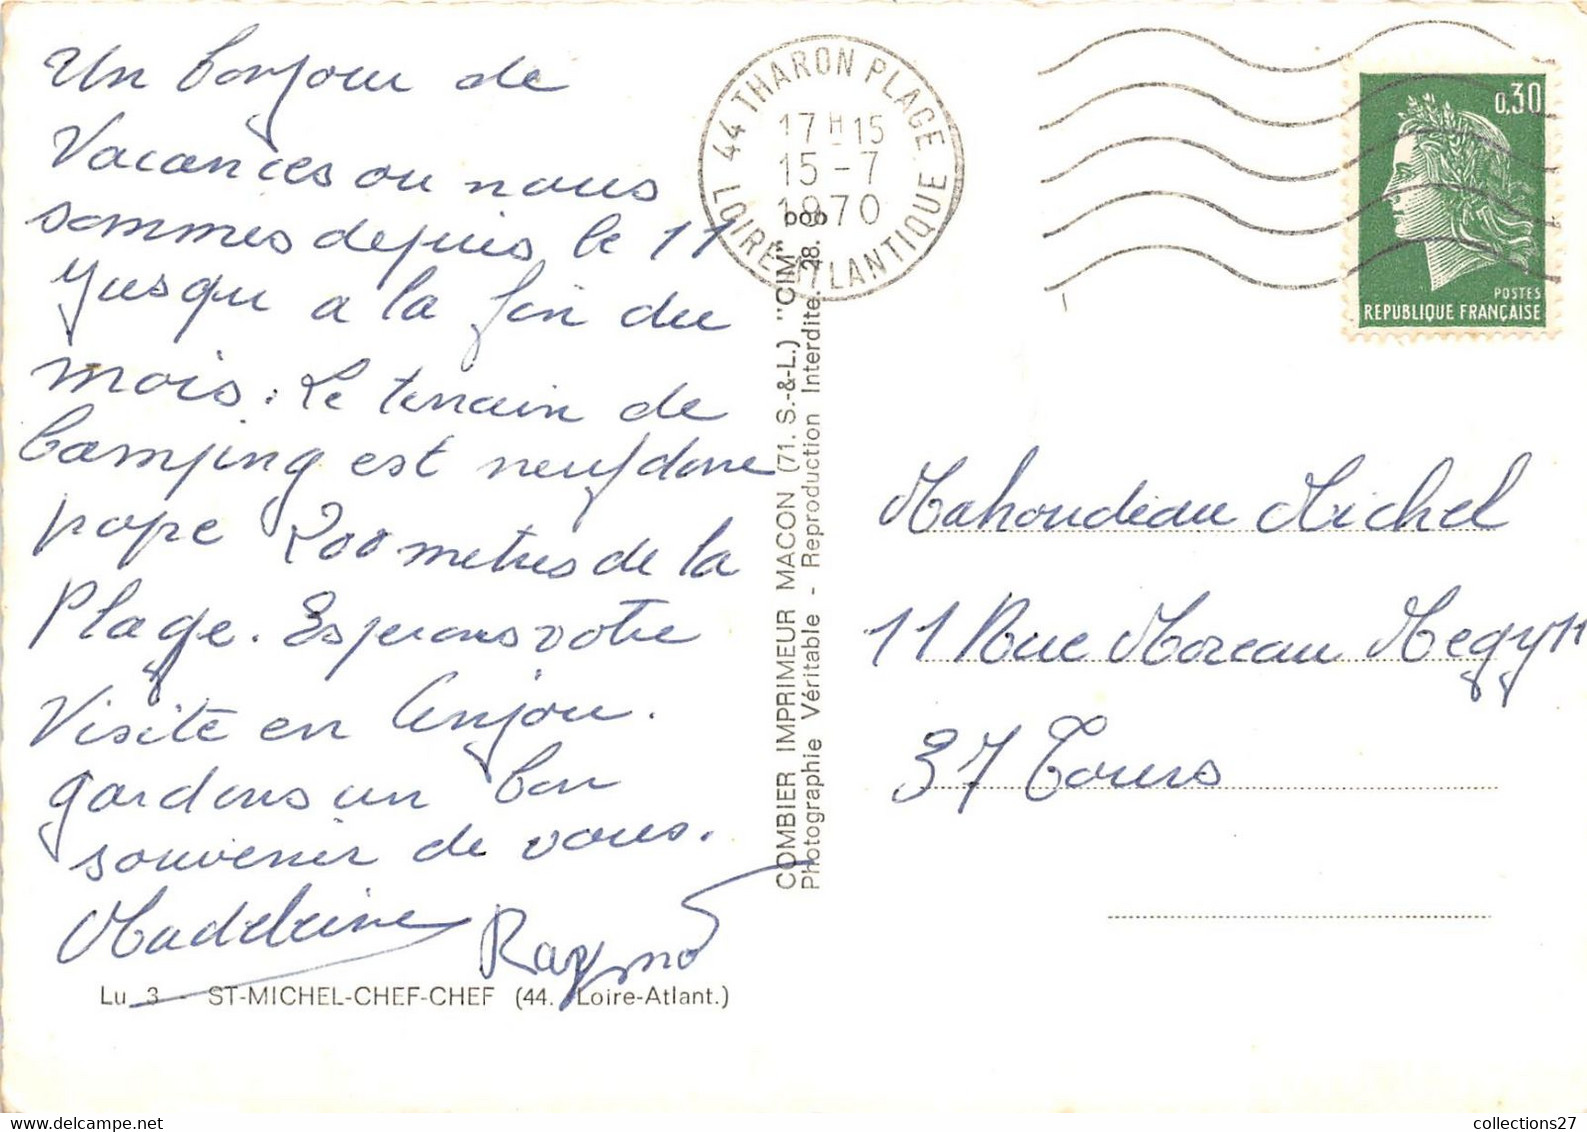 Un bonjour de
Vacances ou nous
sommes depuis le 11
Jusqu a la fin du
mois. Le terrain de
Camping est neuf donc
pope 200 metres de la
Plage. Esperons votre
Visite en Anjou.
gardons un bon
souvenir de vous.
Madeleine Raymond
Lu 3 - ST-MICHEL-CHEF-CHEF (44. Loire-Atlant.)
COMBIER IMPRIMEUR MACON (71. S.-&-L.) "CIM"
Photographie Véritable - Reproduction Interdite. 28.
44 THARON PLAGE
17H15
15-7
1970
LOIRE-ATLANTIQUE
0,30
POSTES
REPUBLIQUE FRANÇAISE
Mahoudeau Michel
11 Rue Moreau Megy
37 Tours
collections27